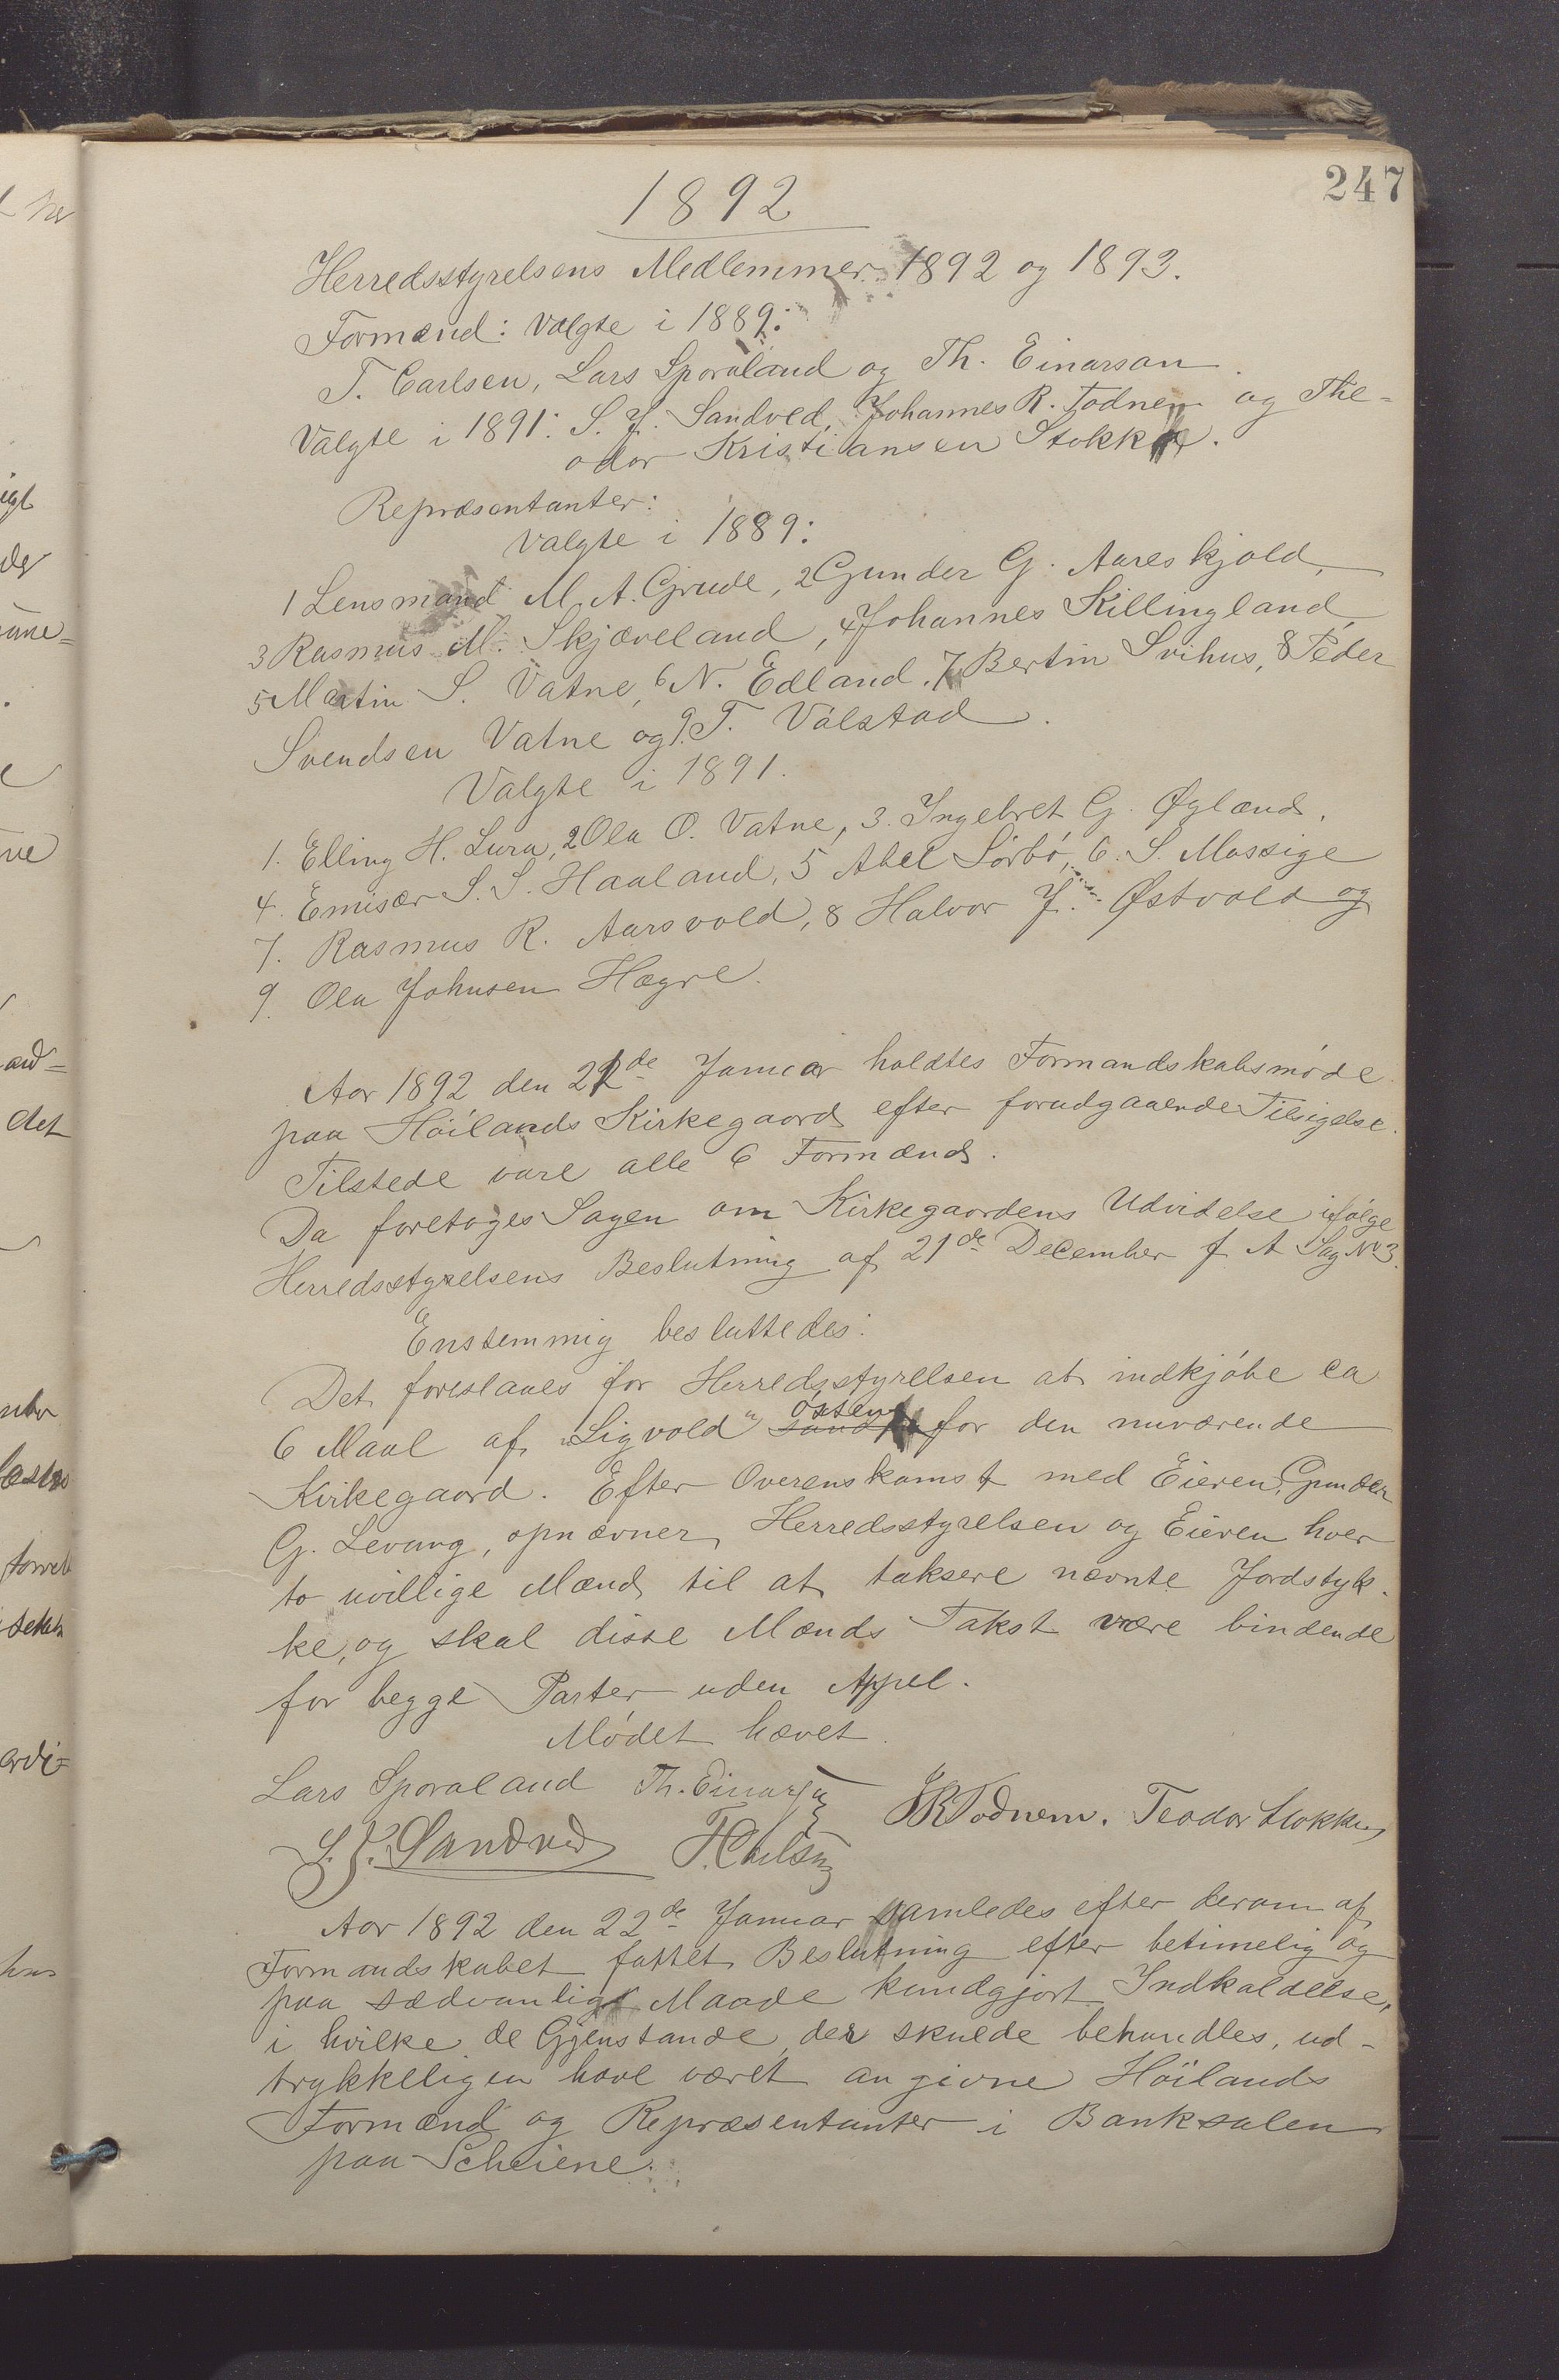 247
1892
Herredsstyrelsens Medlemmer 1892 og 1893.
Formænd: Valgte i 1889:
T. Carlsen, Lars Sporaland og Th. Einarsen.
Valgte i 1891: S. J. Sandved, Johannes R. Todnem og The-
odor Kristiansen Stokka.
Repræsentanter:
Valgte i 1889:
1 Lensmand M. A. Grude, 2 Gunder G. Aareskjold,
3 Rasmus M. Skjæveland, 4 Johannes Killingland,
5 Martin S. Vatne, 6 N. Edland, 7 Bertin Svihus, 8 Peder
Svendsen Vatne og 9. T.Válstad.
Valgte i 1891.
1. Elling H. Lura, 2 Ola O. Vatne, 3. Ingebret G. Øgland,
4. Emisær S. S. Haaland, 5 Abel Sørbø, 6. S. Mossige
7. Rasmus R. Aarsvold, 8 Halvor J. Østvold og
9. Ola Johnsen Hogre.
Aar 1892 den 22de Januar holdtes Formandskabsmøde
paa Höilands Kirkegaard efter forudgaaende Tilsigelse.
Tilstede vare alle 6 Formænd.
Da foretoges Sagen om Kirkegaardens Udvidelse ifølge
Herredsstyrelsens Beslutning af 21de December f. A Sag No 3.
Enstemmig besluttedes:
Det foreslaaes for Herredsstyrelsen at indkjøbe ca
6 Maal af "Ligvold" østen for den nuværende
Kirkegaard. Efter Overenskomst med Eieren, Gunder
G. Levang, opnævner Herredsstyrelsen og Eieren hver
to uvillige Mænd til at taksere nævnte Jordstyk-
ke, og skal disse Mænds Takst være bindende
for begge Parter uden Appel.
Mødet hævet.
Lars Sporaland Th. Einarsen J R Todnem. Teodor Stokka
S. J. Sandved T. Carlsen
Aar 1892 den 22de Januar samledes efter derom af
Formandskabet fattet Beslutning efter betimelig og
paa sædvanlig Maade kundgjort Indkaldelse,
i hvilke de Gjenstande, der skulde behandles, ud-
trykkeligen have været angivne Höilands
Formænd og Repræsentanter i Banksalen
paa Scheiene.